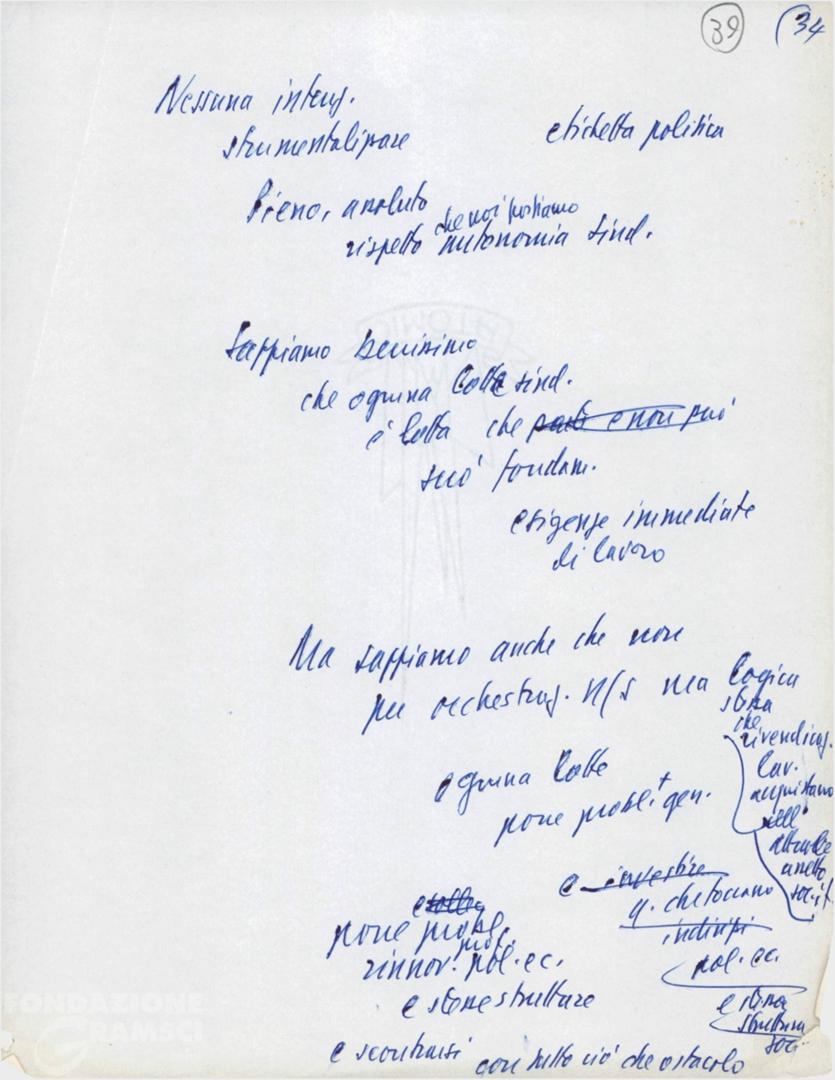 39 (34
Nessuna intenz.
strumentalizzare etichetta politica
Pieno, assoluto
che noi portiamo
rispetto autonomia sind.
Sappiamo benissimo
che ognuna lotta sind.
è lotta che e non può
suo fondam.
esigenze immediate
di lavoro
Ma sappiamo anche che non
per orchestraz. n/s ma logica
stessa
che
rivendicaz.
lav.
acquistano
nell'
attuale
assetto
soc. it.
ognuna lotta
pone probl. + gen.
e investire
q. che toccano
indirizzi
pol. ec.
e stessa
struttura
soc.
pone probl.
rinnov. pol. ec.
e stesse strutture
e scontrarsi con tutto ciò che ostacolo
FONDAZIONE
GRAMSCI